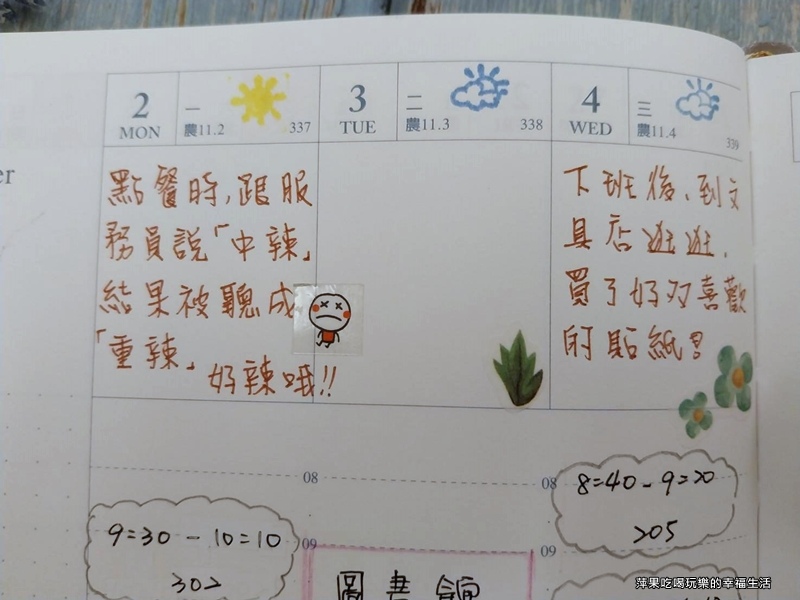 er
2
MON
一
農11.2
337
3
TUE
二
農11.3
338
4
WED
三
農11.4
339
點餐時,跟服
務員說「中辣」
結果被聽成
「重辣」
好辣哦!!
下班後,到文
具店逛逛,
買了好多喜歡
的貼紙
08
08
09
09
9=30 - 10=10
302
8=40 - 9=20
205
圖書館
萍果吃喝玩樂的幸福生活